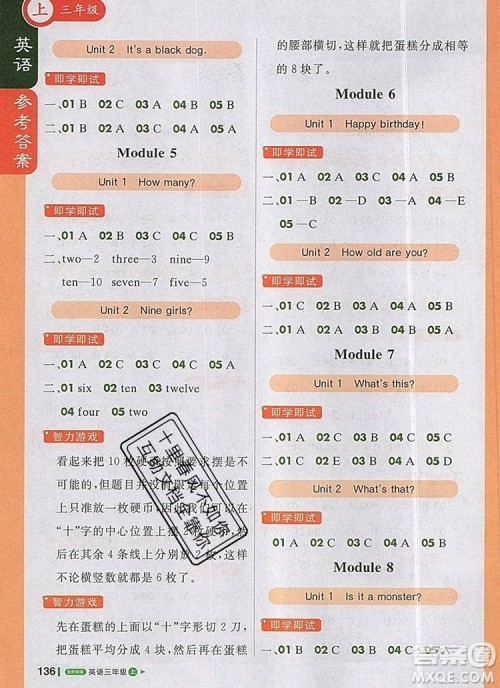 上 三年级
英语
参考答案
Unit 2 It's a black dog.
即学即试
一、01 B 02 C 03 A 04 B 05 B
二、01 B 02 A 03 A 04 B 05 A
Module 5
Unit 1 How many?
即学即试
一、01 A 02 B 03 A 04 C 05 A
二、two—2 three—3 nine—9
ten—10 seven—7 five—5
Unit 2 Nine girls?
即学即试
一、01 B 02 C 03 C 04 C 05 A
二、01 six 02 ten 03 twelve
04 four 05 two
智力游戏
看起来把 10 枚硬币按照要求摆是不
可能的，但题目并没有规定每个位置
上只放一枚硬币，因此我们可以在
“十”字的中心位置上摆 2 枚，然后
再在其余 4 条线上分别放 2 枚，这样
不论横竖数就都是 6 枚了。
智力游戏
先在蛋糕的上面以“十”字形切 2 刀，
把蛋糕平均分成 4 块，再沿着蛋糕
136 英语三年级 上
的腰部横切，可以把蛋糕分成相等
的 8 块了。
Module 6
Unit 1 Happy birthday!
即学即试
一、01 A 02 A 03 C 04 A 05 A
二、01—B 02—D 03—A 04—E
05—C
Unit 2 How old are you?
即学即试
一、01 C 02 B 03 C 04 A 05 A
二、01 B 02 C 03 A 04 B 05 B
Module 7
Unit 1 What's this?
即学即试
一、01 A 02 B 03 C 04 B 05 C
二、01 C 02 B 03 A 04 B 05 A
Unit 2 What's that?
即学即试
一、01 B 02 A 03 C 04 A 05 C
二、01 A 02 B 03 A 04 C 05 A
Module 8
Unit 1 Is it a monster?
即学即试
十里春风不如你
互助文档全靠你
答案圈
MXQE.COM